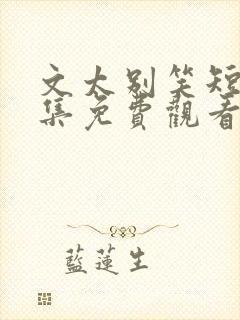 文太别笑短
集免費觀看
藍蓮生